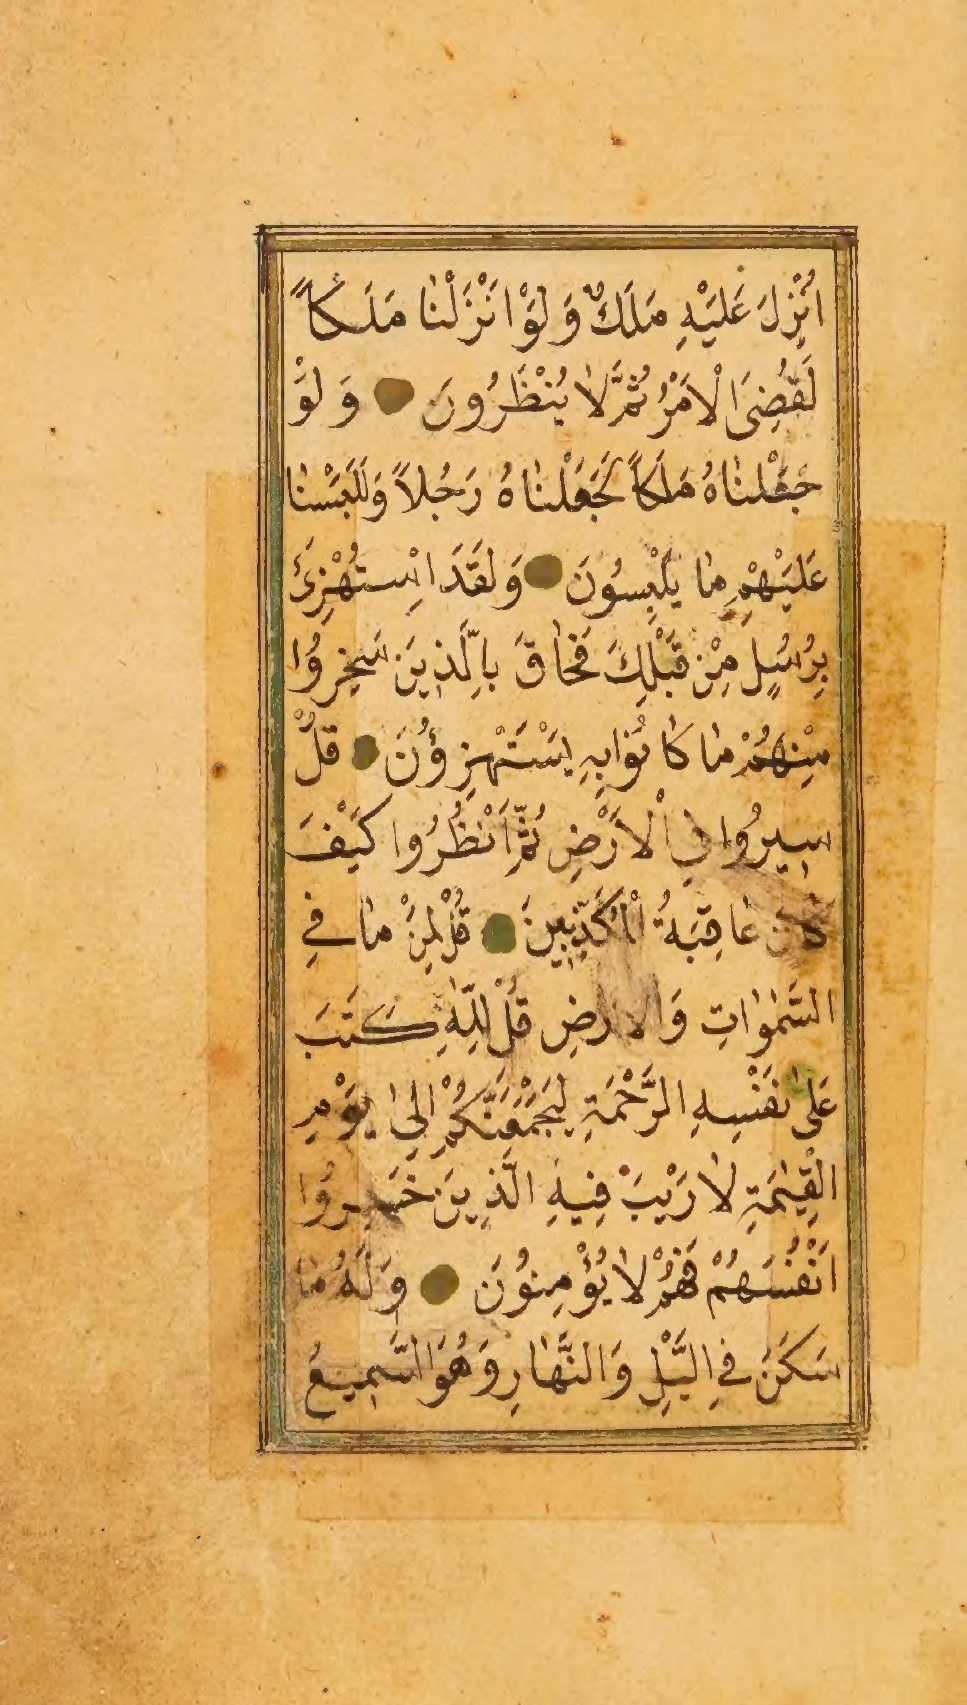 اُنْزِلَ عَلَيْهِ مَلَكٌ وَلَوْ اَنْزَلْنَا مَلَكاً
لَقُضِىَ الْاَمْرُ ثُمَّ لَا يُنْظَرُونَ وَلَوْ
جَعَلْنَاهُ مَلَكاً لَجَعَلْنَاهُ رَجُلاً وَلَلَبَسْنَا
عَلَيْهِمْ مَا يَلْبِسُونَ وَلَقَدِ اسْتُهْزِئَ
بِرُسُلٍ مِنْ قَبْلِكَ فَحَاقَ بِالَّذِينَ سَخِرُوا
مِنْهُمْ مَا كَانُوا بِهِ يَسْتَهْزِؤُنَ قُلْ
سِيرُوا فِي الْاَرْضِ ثُمَّ اَنْظُرُوا كَيْفَ
كَانَ عَاقِبَةُ الْمُكَذِّبِينَ قُلْ لِمَنْ مَا فِي
السَّمٰوَاتِ وَالْاَرْضِ قُلْ لِلّٰهِ كَتَبَ
عَلٰى نَفْسِهِ الرَّحْمَةِ لَيَجْمَعَنَّكُمْ اِلٰى يَوْمِ
الْقِيٰمَةِ لَا رَيْبَ فِيهِ الَّذِينَ خَسِرُوا
اَنْفُسَهُمْ فَهُمْ لَا يُؤْمِنُونَ وَلَهُ مَا
سَكَنَ فِي الَّيْلِ وَالنَّهَارِ وَهُوَ السَّمِيعُ